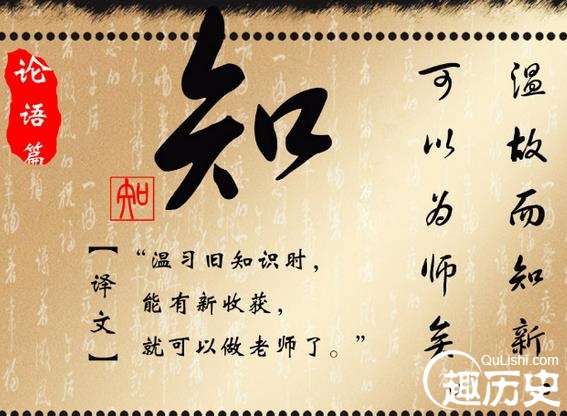 论语篇
知
知
温故而知新
可以为师矣
【译文】
“温习旧知识时，
能有新收获，
就可以做老师了。”
QuLishi.com
趣历史